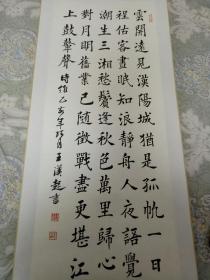 雲開遠見漢陽城猶是孤帆一日
程估客晝眠知浪靜舟人夜語覺
潮生三湘愁鬢逢秋色萬里歸心
對月明舊業已隨徵戰盡更堪江
上鼓鼙聲 時維乙亥年月王漢書